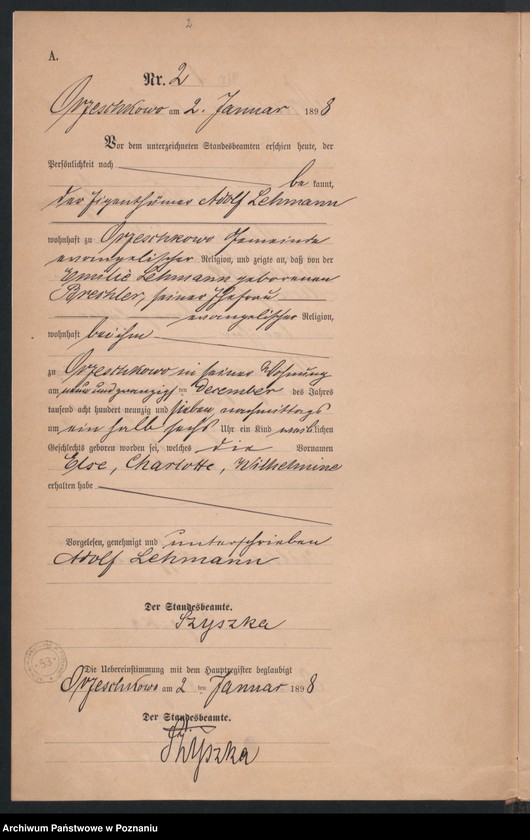 2
A.
Nr. 2
Orzeschkowo am 2. Januar 1898
Vor dem unterzeichneten Standesbeamten erschien heute, der
Persönlichkeit nach
be kannt,
der Eigenthümer Adolf Lehmann
wohnhaft zu Orzeschkowo Gemeinde
evangelischer Religion, und zeigte an, daß von der
Emilie Lehmann geborenen
seiner Ehefrau
evangelischer Religion,
wohnhaft bei ihm
zu Orzeschkowo in seiner Wohnung
am neun und zwanzigsten December des Jahres
tausend acht hundert neunzig und sieben, nachmittags
um ein halb sechs Uhr ein Kind weiblichen
Geschlechts geboren worden sei, welches die Vornamen
Else, Charlotte, Wilhelmine
erhalten habe
Vorgelesen, genehmigt und unterschrieben
Adolf Lehmann
Der Standesbeamte.
Szyszka
53
Die Uebereinstimmung mit dem Hauptregister beglaubigt
Orzeschkowo am 2 ten Januar 1898
Der Standesbeamte.
Szyszka
Archiwum Państwowe w Poznaniu